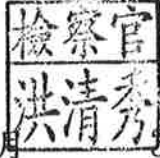 檢察官
洪清秀
月